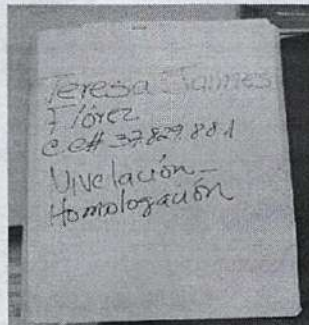 Teresa Jaimes
Flórez
c.c# 37.829.881
Nivelación -
Homologación